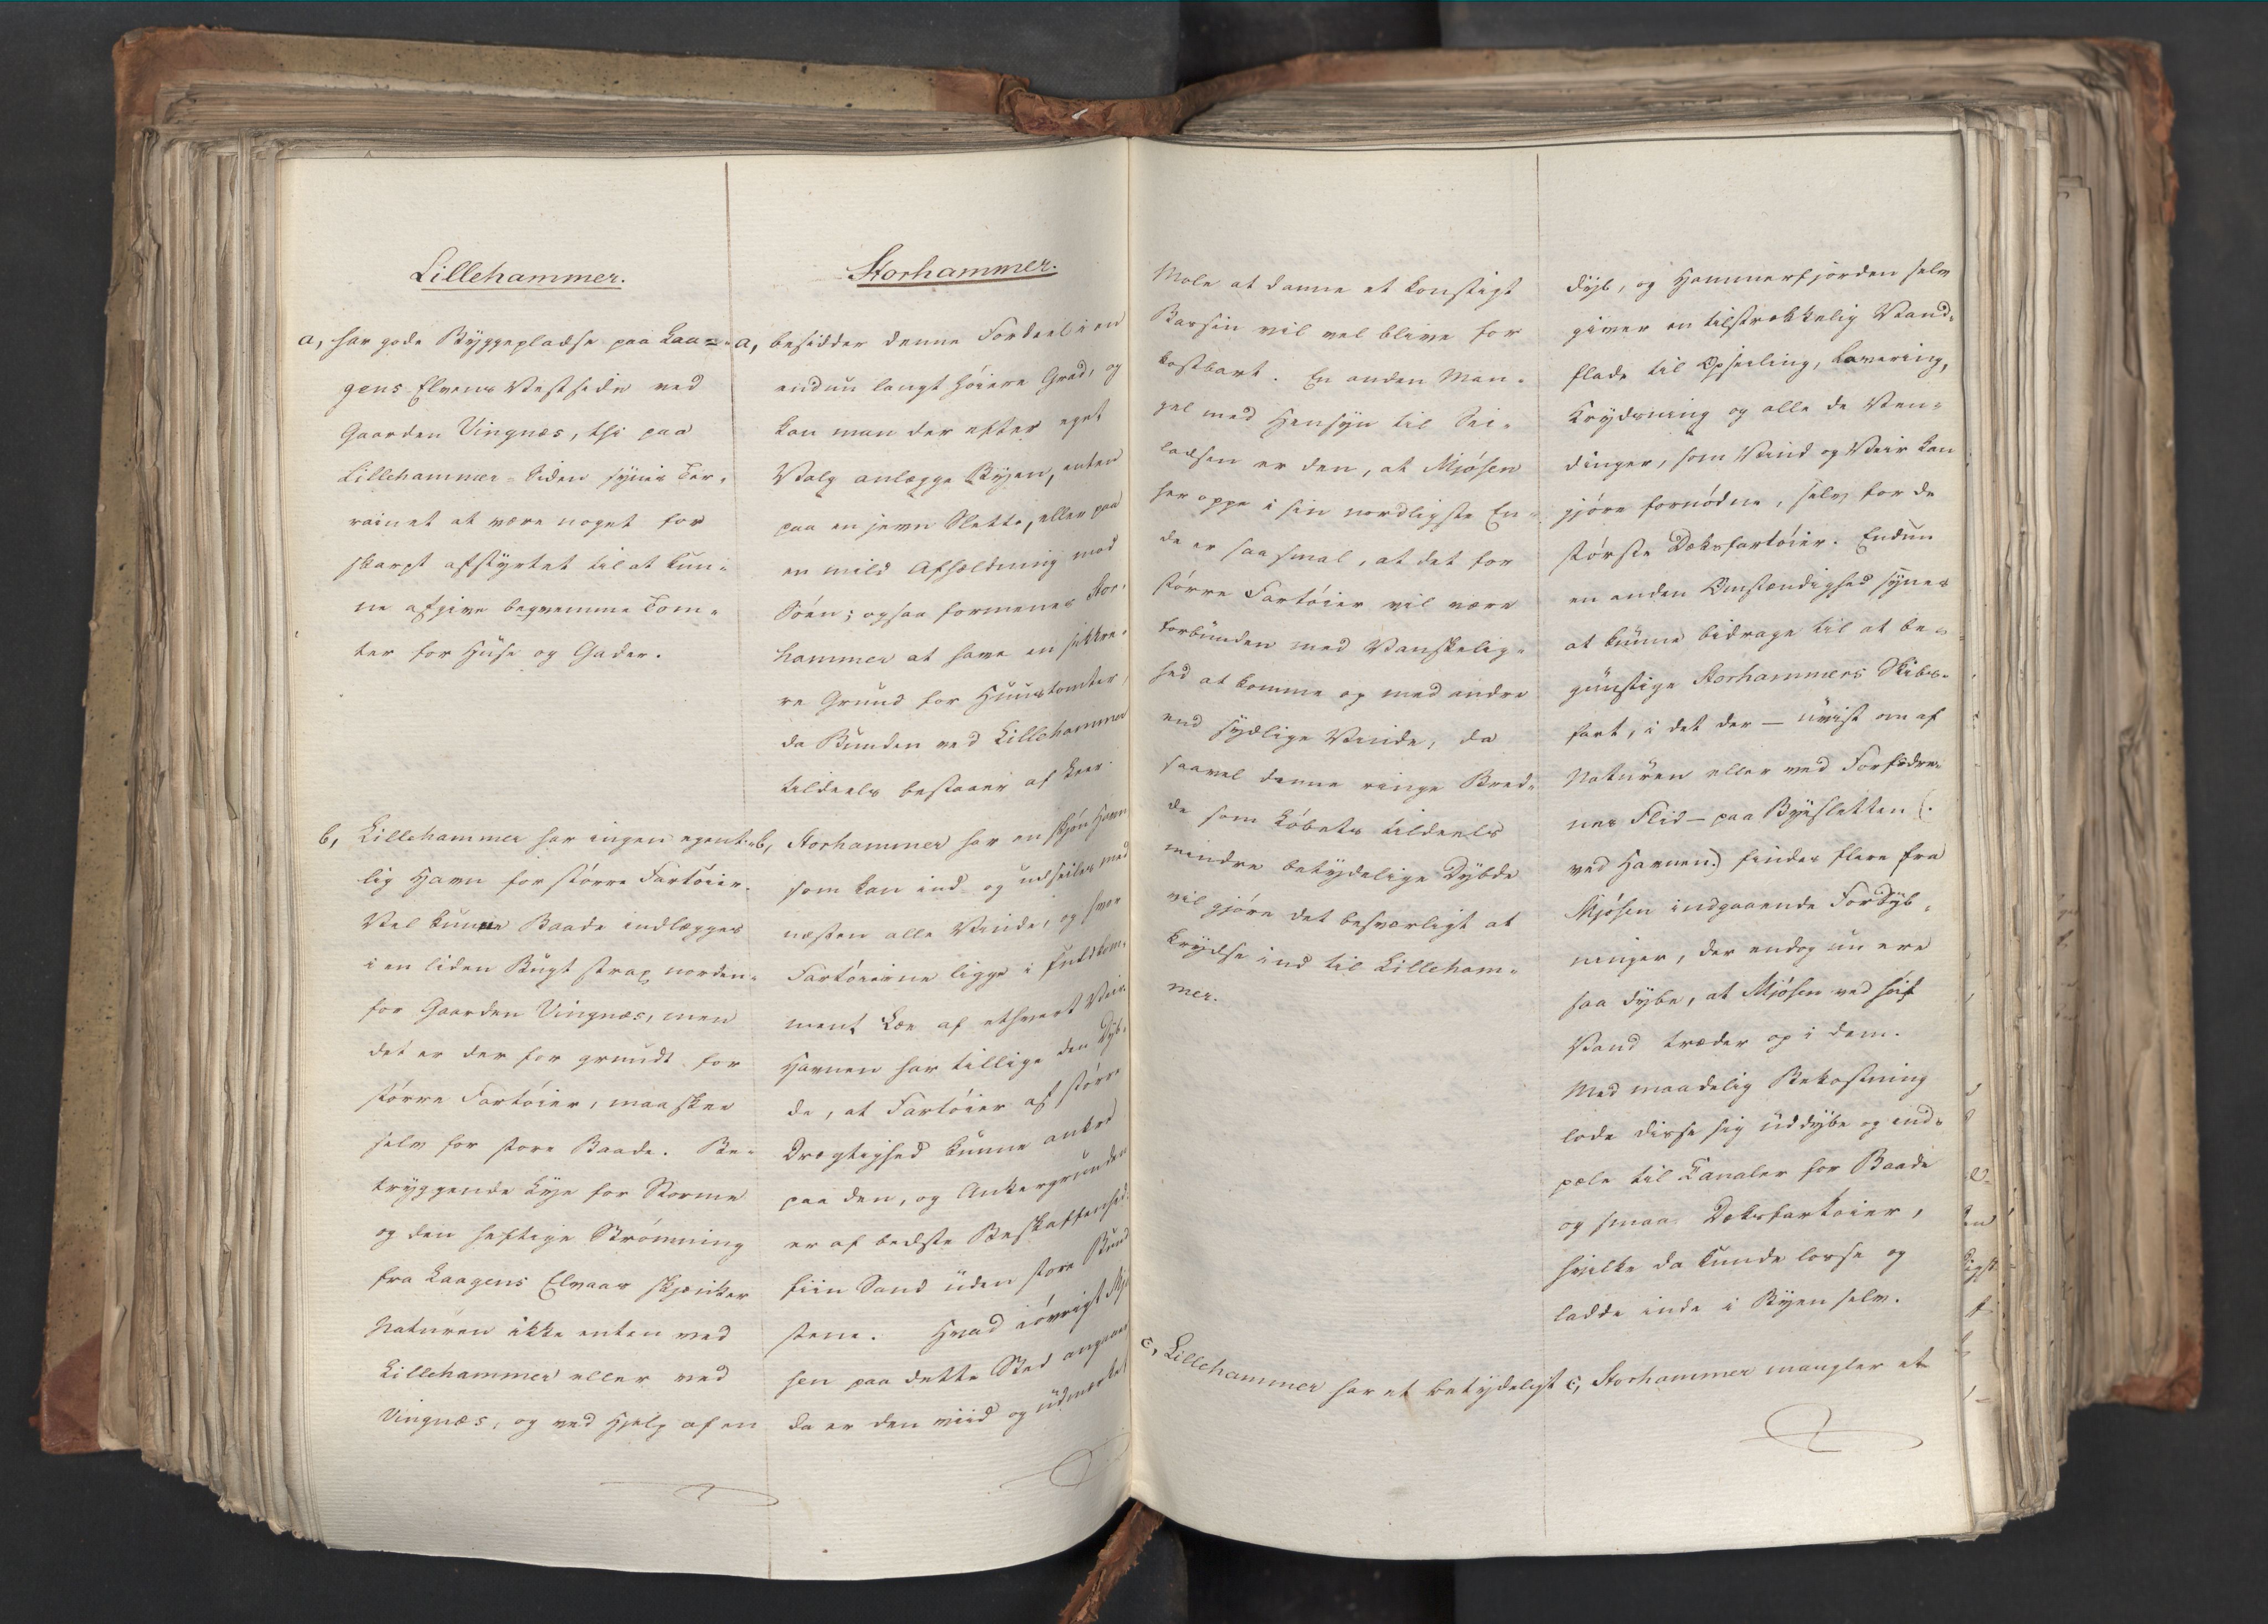 Lillehammer.
a, har gode Byggepladse paa Laa-
gens Elvens Vestside ved
Gaarden Vingnæs, thi paa
Lillehammer-Siden synes Ter-
rainet at være noget for
skarpt afstyrtet til at kun-
ne afgive beqvemme Tom-
ter for Huse og Gader.
b, Lillehammer har ingen egent-
lig Havn for större Fartöier.
Vel kunne Baade indlægges
i en liden Bugt strax norden-
for Gaarden Vingnæs, men
det er der for grundt for
större Fartöier, maaskee
selv for store Baade. Be-
tryggende Lye for Storme
og den heftige Strömning
fra Laagens Elvaas skjenker
Naturen ikke enten ved
Lillehammer eller ved
Vingnæs, og ved Hjelp af en
Storhammer.
a, besidder denne Fordeel i en
endnu langt höiere Grad, og
kan man der efter eget
Valg anlægge Byen, enten
paa en jevn Slette, eller paa
en mild Afheldning mod
Söen; ogsaa formenes Stor-
hammer at have en sikkre-
re Grund for Huustomter,
da Bunden ved Lillehammer
tildeels bestaaer af Leer.
b, Storhammer har en skjön Havn
som kan ind og udseiles med
næsten alle Vinde, og hvor
Fartöierne ligge i fuldkom-
ment Læe af ethvert Veir.
Havnen har tillige den Dyb-
de, at Fartöier af större
Drægtighed kunne ankre
paa den, og Ankergrunden
er af bedste Beskaffenhed
fiin Sand uden store Bund
stene. Hvad iövrigt Mjö
sen paa dette Sted angaaer
da er den viid og udmærket
Mole at danne et konstigt
Bassin vil vel blive for
kostbart. En anden Man-
gel med Hensyn til Sei-
ladsen er den, at Mjösen
her oppe i sin nordligste En-
de er saa smal, at det for
större Fartöier vil være
forbunden med Vanskelig-
hed at komme op med andre
end sydlige Vinde, da
saavel denne ringe Bred-
de som Löbets tildeels
mindre betydelige Dybde
vil gjöre det besværligt at
krydse ind til Lilleham-
mer.
c, Lillehammer har et betydeligt
dyb, og Hammerfjorden selv
giver en tilstrækkelig Vand-
flade til Opseiling, Lavering,
Krydsning og alle de Ven-
dinger, som Vind og Veir kan
gjöre fornödne, selv for de
störste Dæksfartöier. Endnu
en anden Omstændighed synes
at kunne bidrage til at be-
gunstige Storhammers Skibs-
fart, i det der — uvist om af
Naturen eller ved Forfædre-
nes Flid — paa Byesletten (:
ved Havnen:) findes flere fra
Mjösen indgaaende Fordyb-
ninger, der endog nu ere
saa dybe, at Mjösen ved höit
Vand træder op i dem.
Med maadelig Bekostning
lode disse sig uddybe og ind-
pæle til Kanaler for Baade
og smaa Dæksfartöier,
hvilke da kunde losse og
ladde inde i Byen selv.
c, Storhammer mangler et